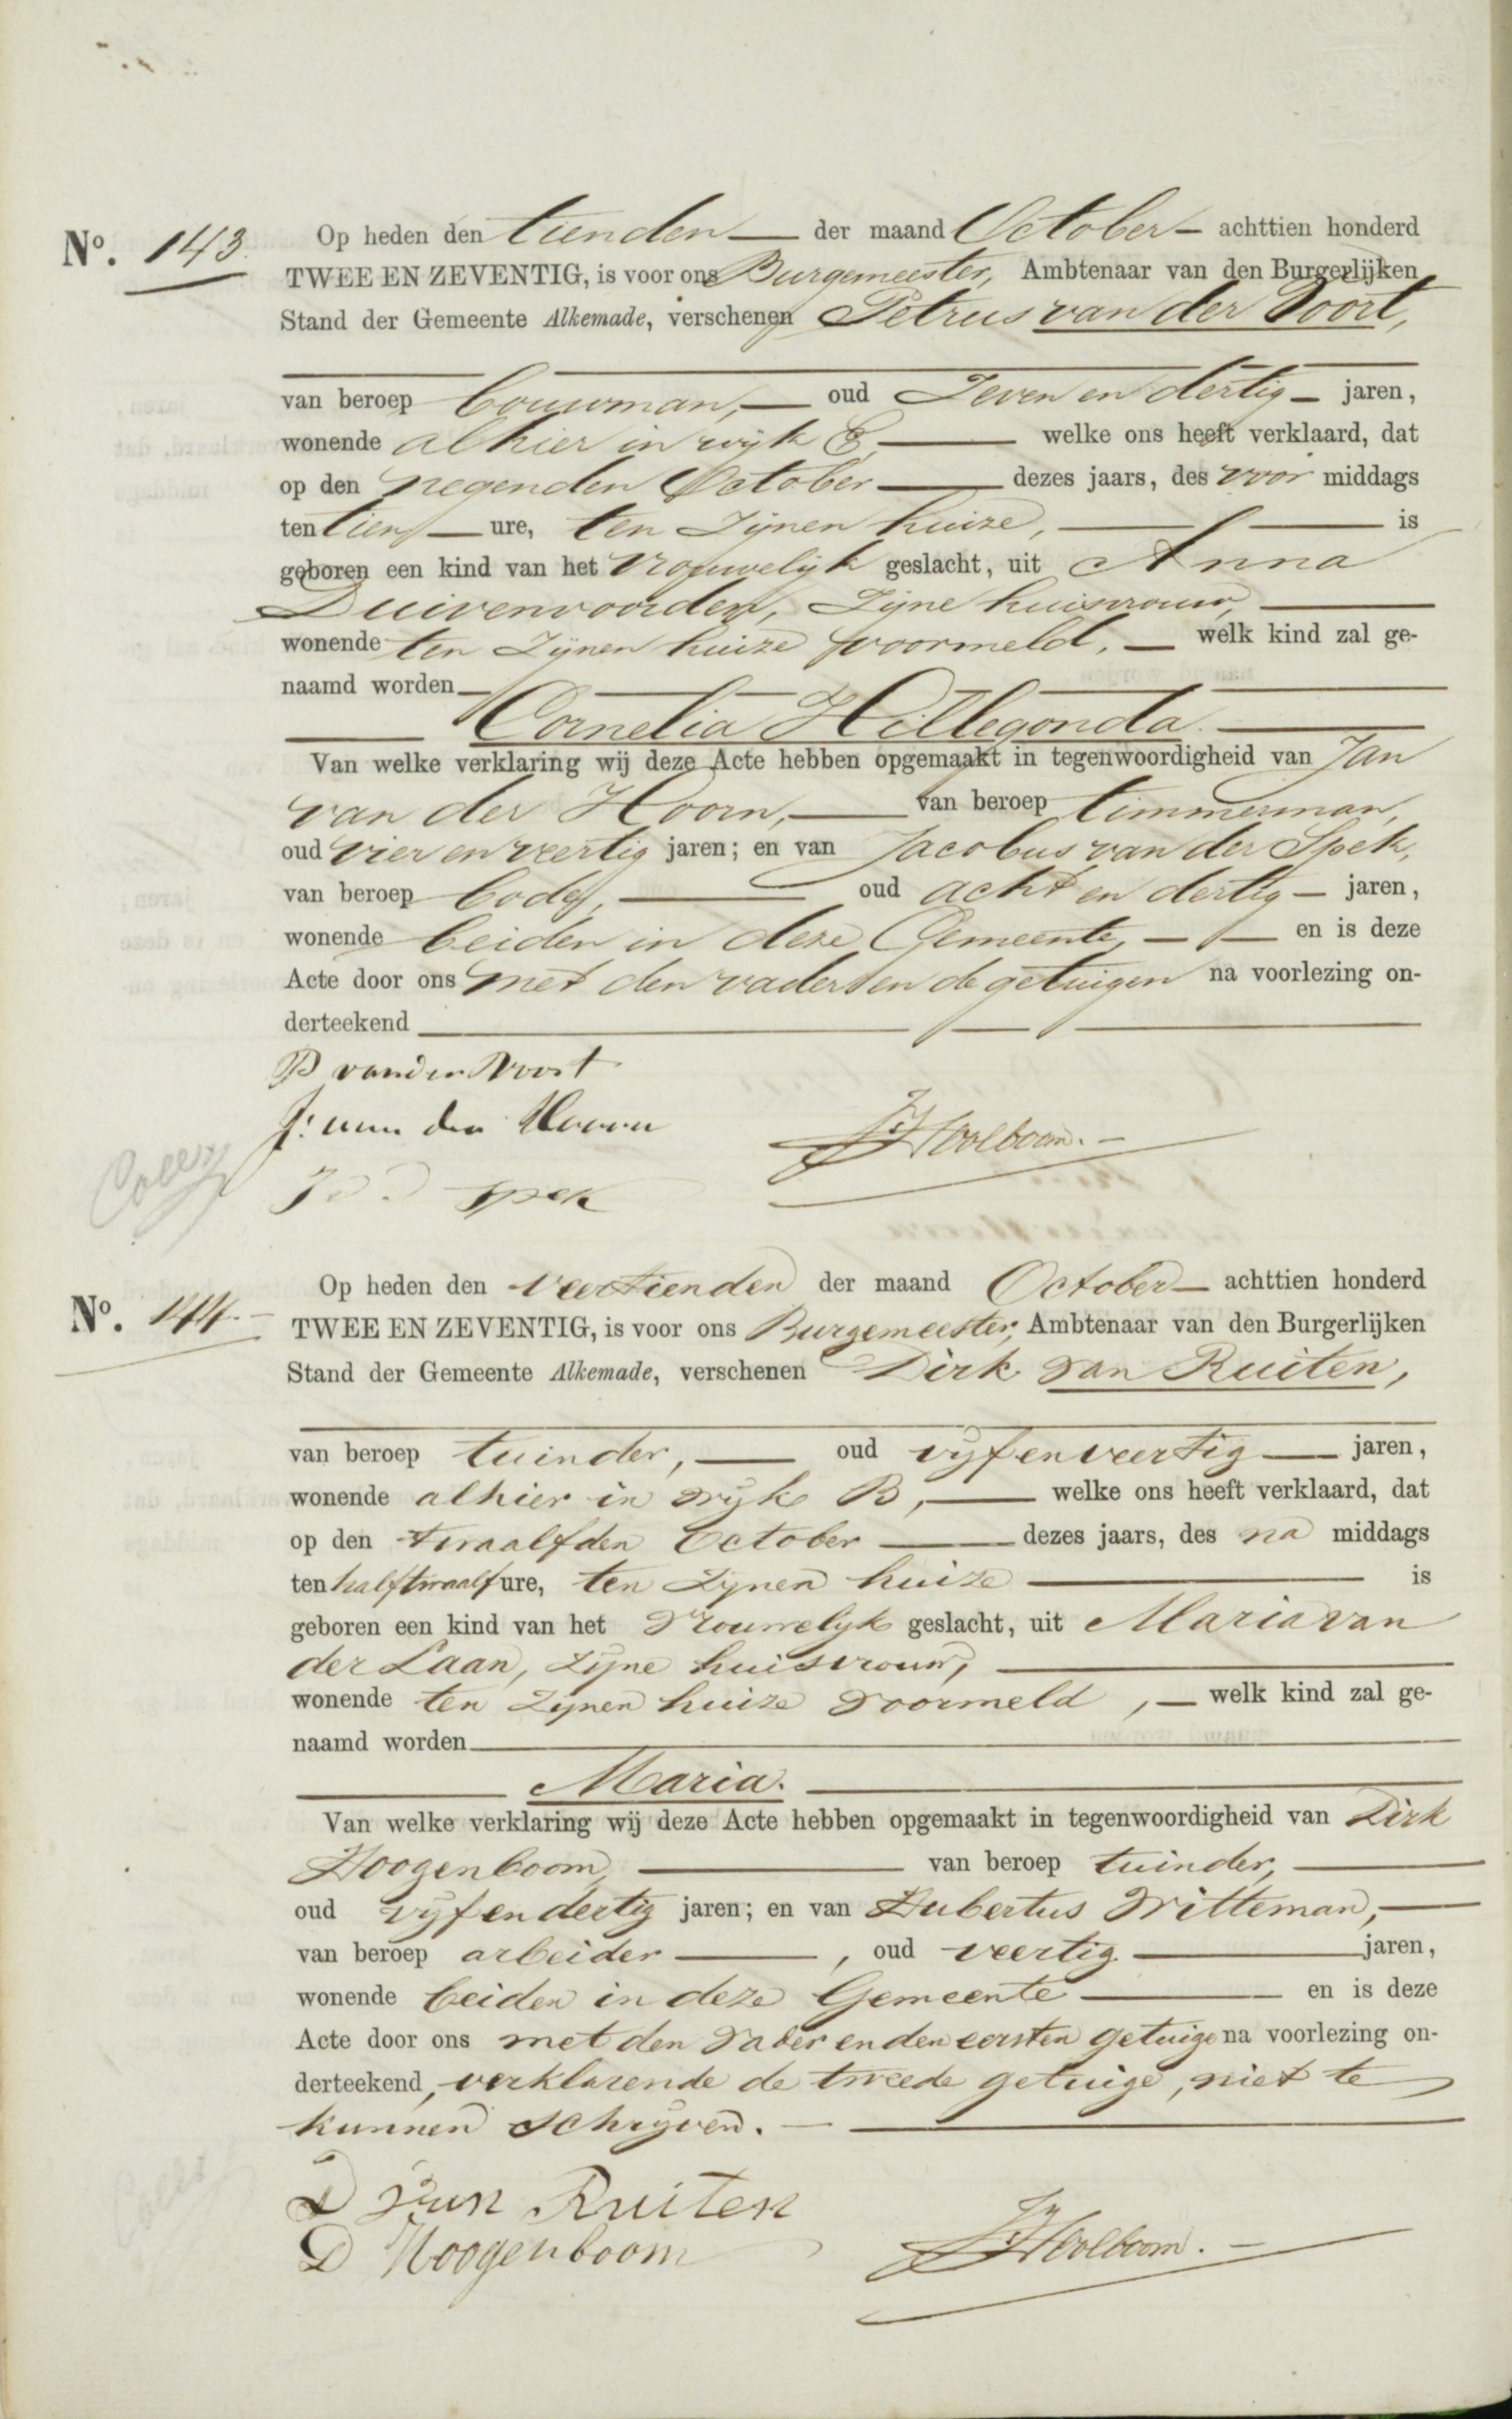 Nº. 143.
Op heden den tienden der maand October achttien honderd
TWEE EN ZEVENTIG, is voor ons Burgemeester, Ambtenaar van den Burgerlijken
Stand der Gemeente Alkemade, verschenen Petrus van der Voort,
van beroep bouwman, oud Zeven en dertig jaren,
wonende alhier in wijk welke ons heeft verklaard, dat
op den negenden October dezes jaars, des voor middags
ten tien ure, ten Zijnen huize, is
geboren een kind van het vrouwelijk geslacht, uit Anna
Duivenvoorden, Zijne huisvrouw,
wonende ten Zijnen huize voormeld, welk kind zal ge-
naamd worden
Cornelia Hillegonda.
Van welke verklaring wij deze Acte hebben opgemaakt in tegenwoordigheid van Jan
van der Hoorn, van beroep timmerman,
oud vier en veertig jaren; en van Jacobus van der Spek,
van beroep bode, oud acht en dertig jaren,
wonende beiden in deze Gemeente, en is deze
Acte door ons met den vader en de getuigen na voorlezing on-
derteekend
P van der Voort
J: van der Hoorn
J Spek
Holboom.
Nº. 144.
Op heden den veertienden der maand October achttien honderd
TWEE EN ZEVENTIG, is voor ons Burgemeester, Ambtenaar van den Burgerlijken
Stand der Gemeente Alkemade, verschenen Dirk van Ruiten,
van beroep tuinder, oud vijf en veertig jaren,
wonende alhier in wijk B, welke ons heeft verklaard, dat
op den twaalfden October dezes jaars, des na middags
ten half twaalf ure, ten Zijnen huize is
geboren een kind van het vrouwelijk geslacht, uit Maria van
der Laan, zijne huisvrouw,
wonende ten Zijnen huize voormeld, welk kind zal ge-
naamd worden
Maria.
Van welke verklaring wij deze Acte hebben opgemaakt in tegenwoordigheid van Dirk
Hoogenboom, van beroep tuinder,
oud vijf en dertig jaren; en van Hubertus Witteman,
van beroep arbeider, oud veertig jaren,
wonende beiden in deze Gemeente en is deze
Acte door ons met den vader en den eersten getuige na voorlezing on-
derteekend, verklarende de tweede getuige, niet te
kunnen schrijven.
D van Ruiten
D Hoogenboom
Holboom.